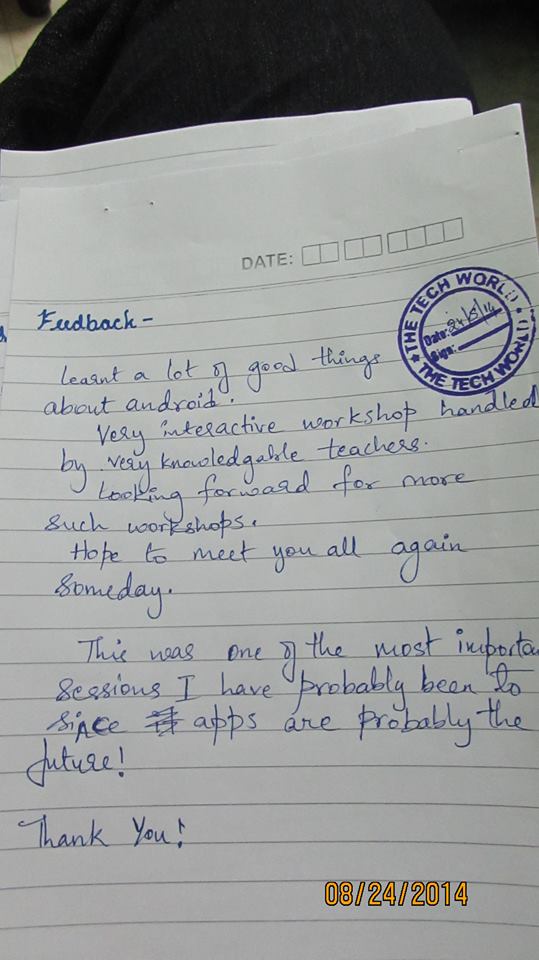 DATE:
Feedback -
THE TECH WORLD
Date: 24/8/14
Sign:
THE TECH WORLD
Learnt a lot of good things
about android.
Very interactive workshop handled
by very knowledgable teachers.
Looking forward for more
such workshops.
Hope to meet you all again
someday.
This was one of the most importa
sessions I have probably been to
since apps are probably the
future!
Thank You!
08/24/2014